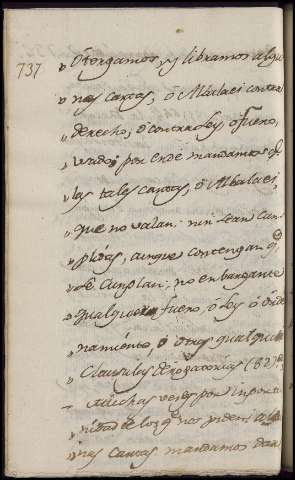 737.
" Otorgamos, y libramos algu
" nas cartas, ó Albalaes contra
" derecho, ó contra Ley ó fuero,
" usado: por ende mandamos q̃
" las tales cartas, ó Albalaes,
" que no valan: nin sean cum
" plidas, aunque contengan q̃
" se Cumplan, no enbargante
" qualquier fuero, ó Ley ó orde
" namiento, ó otras qualquier
" Clausulas derogatorias (82):
" Muchas veces por inportu
" nidad de los q̃ nos piden algu
" nas cartas mandamos dar